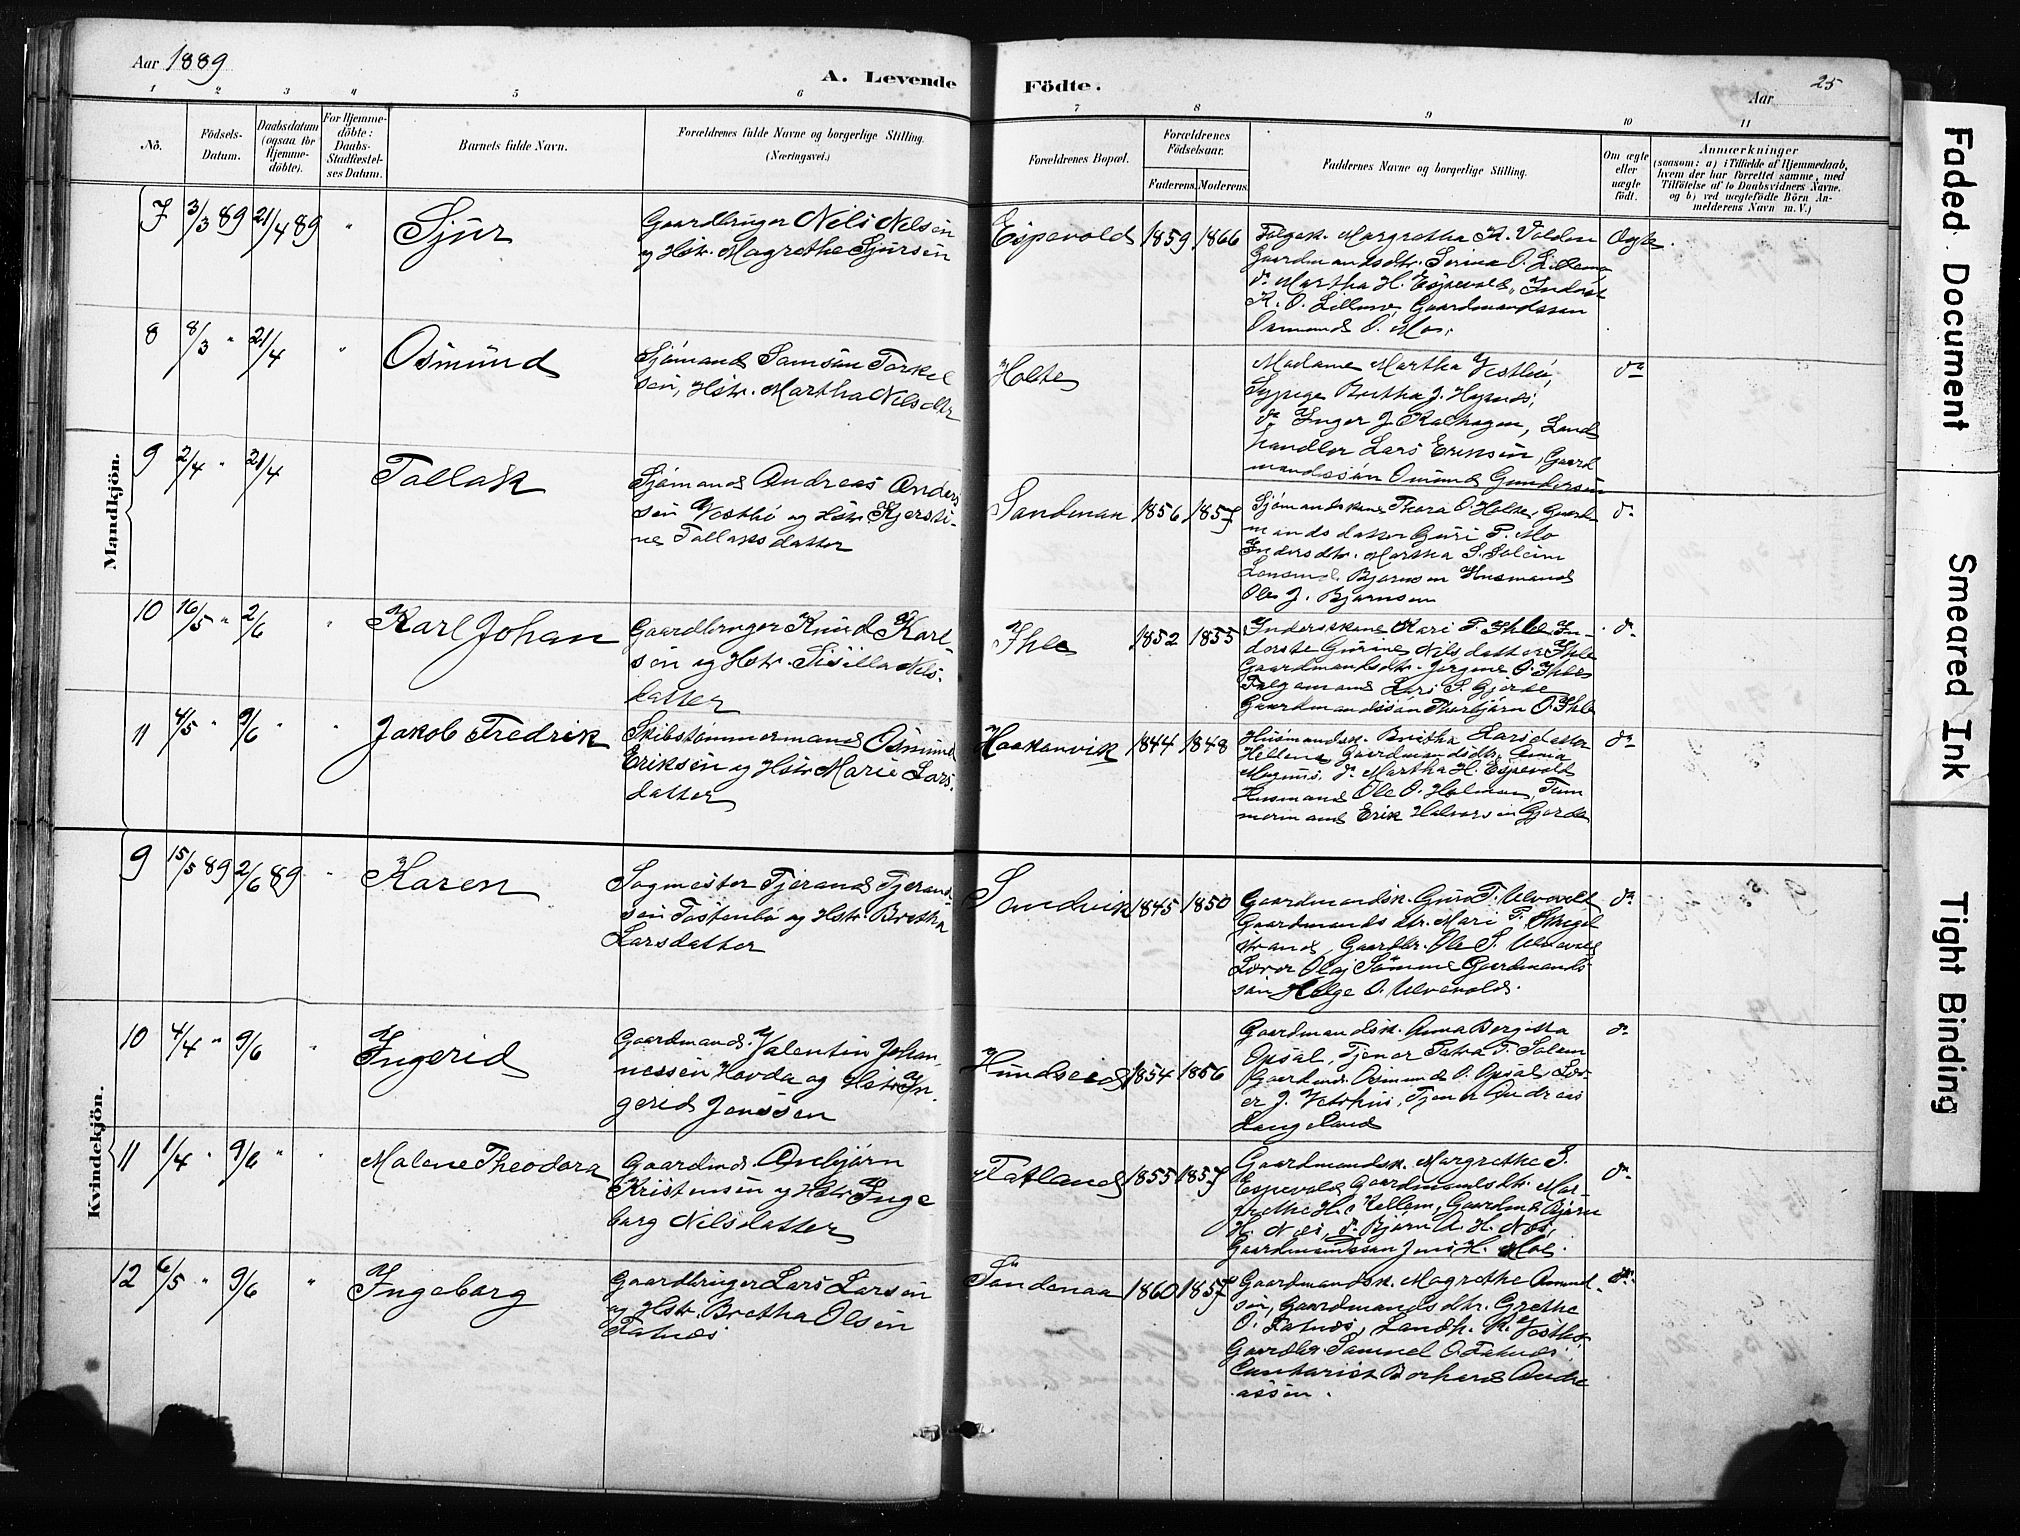 Aar 1889
A. Levende
Födte.
Aar
25
1 2 3 4 5 6 7 8 9 10 11
No.
Födsels-
Datum.
Daabsdatum
(ogsaa for
Hjemme-
döbte).
For Hjemme-
döbte:
Daabs-
Stadfæstel-
ses Datum.
Barnets fulde Navn.
Forældrenes fulde Navne og borgerlige Stilling.
(Næringsvei.)
Forældrenes Bopæl.
Forældrenes
Födselsaar.
Faderens. Moderens.
Faddernes Navne og borgerlige Stilling.
Om ægte
eller
uægte
födt.
Anmærkninger
(saasom: a) i Tilfælde af Hjemmedaab,
hvem der har forrettet samme, med
Tilföielse af to Daabsvidners Navne.
og b) ved uægtefödte Börn An-
melderens Navn m. V.)
Mandkjön.
7 3/3 89 21/4 89 " Sjur
Gaardbruger Nils Nilsen
og Hstr. Magrethe Sjursen
Espevold 1859 1866
Margretha K. Volden
Gaardmandsdtr. Serina O. Lillemo
do Martha H. Espevold, Inderst
K. O. Lillemo, Gaardmandssøn
Osmund O. Mo.
Ægte
8 8/3 " 21/4 " Osmund
Sjømand Samson Torkel
sen, Hstr. Martha Nilsdtr
Holte
Madame Martha Vestbø,
Sypige Bertha J.
do Inger J. Land
handler Lars Eriksen, Gaard
mandssøn Omund Gundersen
do
9 2/4 " 21/4 Tallak
Sjømand Andreas Anders
sen Vestbø og Hstr. Kjersti-
ne Tallaksdatter
Sandman 1856 1857
Sjømandskone Thora O. Holte, Gaard
mandsdatter Guri T. Mo
Indersdtr. Martha S. Soleim
Lensmd. Bjørnsen Husmand
Ole J. Bjørnsen
do
10 16/5 " 2/6 " Karl Johan
Gaardbruger Knud Karl-
sen og Hstr. Sisilla Nils-
datter
Ihle 1852 1855
Inderskone Kari T. Ihle, In-
derste Gurine Nilsdatter Ihle
Gaardmandsdtr. Jørgine O. Ihle
Lars S. Gjerde
Gaardmandssøn Thorbjørn O. Ihle
do
11 4/5 " 9/6 " " Jakob Fredrik
Skibstømmermand Osmund
Eriksen og Hstr. Marie Lars-
datter
Haakanvik 1844 1848
Husmandsk. Britha Larsdatter
Hellene, Gaardmandsdtr. Anna
Magnus, do Martha H. Espevold
Husmand Ole O. Holman, Tøm
mermand Erik Halvorsen Gjerde
do
Kvindekjön.
9 15/5 89 2/6 89 " Karen
Sagmester Tjerand Tjerand
sen Tostenbø og Hstr. Bretha
Larsdatter
Sandvik 1845 1850
Gaardmandsk. Guro T. Ulvevold
Gaardmandsdtr. Mari T.
strand, Gaardbr. Ole S. Ulvevold
Lærer Olaj Sømme Gaardmands
søn Helge O. Ulvevold.
do
10 4/4 " 9/6 " Ingerid
Gaardmand Valentin Johan
nessen Hovda og Hstr. In-
gerid Jenssen
Hundseid 1854 1856
Gaardmandsk. Anna Bergitta
Opsal, Tjener Petra T. Solem
Gaardmd. Osmund O. Opsal, Lær-
er J. Vetrhus, Tjener Andreas
Langeland
do
11 1/4 " 9/6 " " Malene Theodora
Gaardmd. Anbjørn
Kristensen og Hstr. Inge
borg Nilsdatter
Tatland 1855 1857
Gaardmandsk. Margrethe S.
Espevold Gaardmandsdtr. Mar-
grethe H. Kellem, Gaardmd. Bjørn
H. Næs, do. Bjørn A. H. Næs,
Gaardmandssøn Jens H. Mæl.
do
12 6/5 " 9/6 " Ingeborg
Gaardbruger Lars Larsen
og Hstr. Bretha Olsen
Fatnæs
Søndenaa 1860 1857
Gaardmandsk. Magrethe Amund-
sen, Gaardmandsdtr. Grethe
O. Fatnæs, Landh. K. Vestbø,
Gaardbr. Samuel O. Fatnæs,
Contorist Borhard Andre
assen.
do
Faded Document
Smeared Ink
Tight Binding